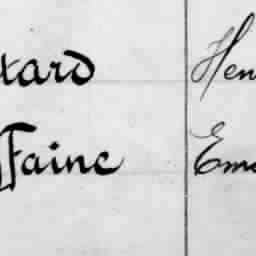 tard Hen
Faine Eme